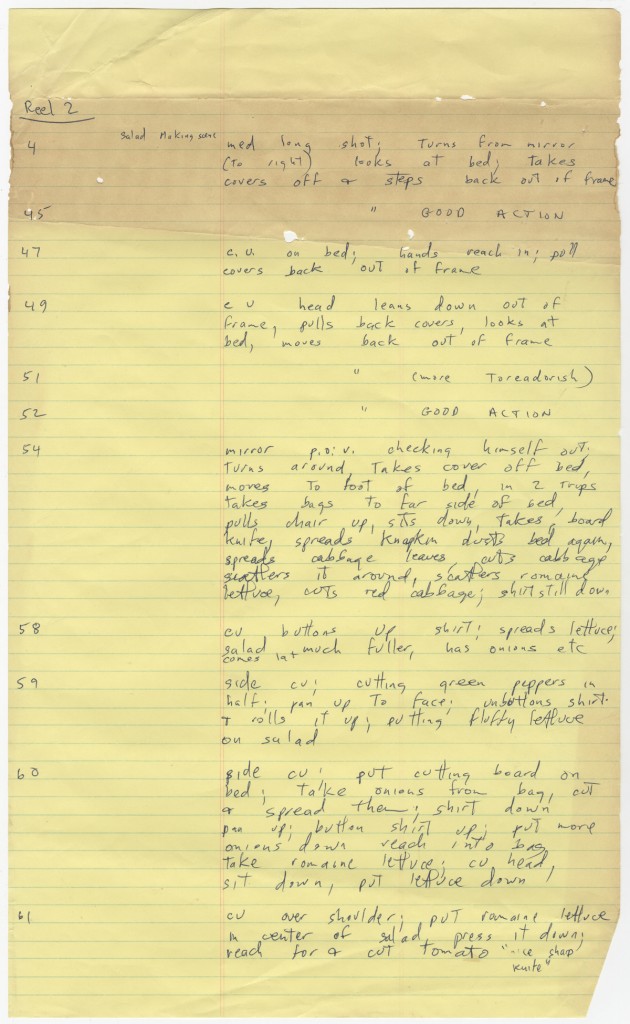 Reel 2
4 Salad Making scene med long shot; Turns from mirror
(to right) looks at bed; takes
covers off & steps back out of frame
45 " GOOD ACTION
47 c.u. on bed; hands reach in; pull
covers back out of frame
49 c u head leans down out of
frame, pulls back covers, looks at
bed, moves back out of frame
51 " (more Toreadorish)
52 " GOOD ACTION
54 mirror p.o.v. checking himself out;
turns around, Takes cover off bed,
moves to foot of bed, in 2 trips
takes bags to far side of bed,
pulls chair up, sits down, takes board
knife, spreads dusts bed again,
spreads cabbage leaves, cuts cabbage
scatters it around, scatters romaine
lettuce, cuts red cabbage; shirt still down
58 cu buttons up shirt; spreads lettuce;
salad much fuller, has onions etc
comes in
59 side cu; cutting green peppers in
half; pan up to face; unbuttons shirt
& rolls it up; putting fluffy lettuce
on salad
60 side cu; put cutting board on
bed; take onions from bag, cut
& spread them; shirt down
pan up; button shirt up; put more
onions down reach into bag
take romaine lettuce; cu head,
sit down, put lettuce down
61 cu over shoulder; put romaine lettuce
in center of salad, press it down;
reach for & cut tomato "nice sharp
knife"